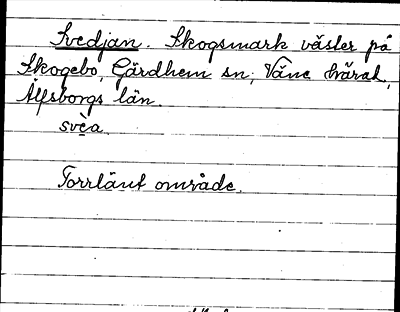 Svedjan. Skogsmark väster på
Skogebo, Gärdhem sn; Väne härad,
Älfsborgs län.
svèa.
Torrlänt område.